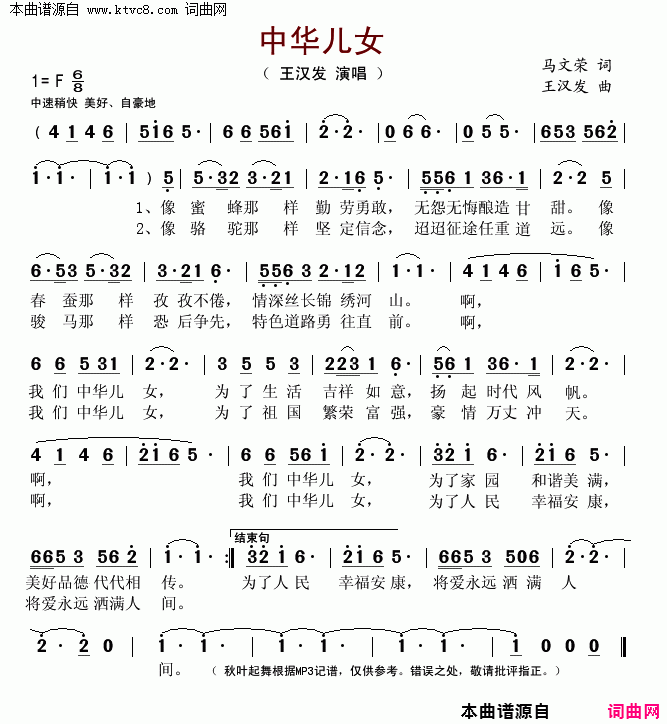 本曲谱源自 www.ktvc8.com 词曲网
中华儿女
( 王汉发 演唱 )
马文荣 词
王汉发 曲
1=F 6/8
中速稍快 美好、自豪地
( 4 1 4 6 | 5 1 6 5 · | 6 6 5 6 1 | 2 · 2 · | 0 6 6 · | 0 5 5 · | 6 5 3 5 6 2 |
1 · 1 · | 1 · 1 · ) 5 | 5 · 3 2 3 · 2 1 | 2 · 1 6 5 · | 5 5 6 1 3 6 · 1 | 2 · 2 5
1、像 蜜 蜂那 样 勤 劳勇敢, 无怨无悔酿造 甘 甜。 像
2、像 骆 驼那 样 坚 定信念, 迢迢征途任重 道 远。 像
6 · 5 3 5 · 3 2 | 3 · 2 1 6 · | 5 5 6 3 2 · 1 2 | 1 · 1 · | 4 1 4 6 | 1 6 1 5 · |
春 蚕那 样 孜 孜不倦, 情深丝长锦 绣河 山。 啊,
骏 马那 样 恐 后争先, 特色道路勇 往直 前。 啊,
6 6 5 3 1 | 2 · 2 · | 3 5 5 3 | 2 2 3 6 · | 5 6 1 3 6 · 1 | 2 · 2 · |
我 们 中华儿 女, 为 了 生 活 吉祥 如 意, 扬 起 时代 风 帆。
我 们 中华儿 女, 为 了 祖 国 繁荣 富 强, 豪 情 万丈 冲 天。
4 1 4 6 | 2 1 6 5 · | 6 6 5 6 1 | 2 · 2 · | 3 2 1 6 · | 2 1 6 5 · |
啊, 我 们 中华儿 女, 为了家 园 和谐美 满,
啊, 我 们 中华儿 女, 为了人 民 幸福安 康,
结束句
6 6 5 3 5 6 2 | 1 · 1 · :‖ 3 2 1 6 · | 2 1 6 5 · | 6 6 5 3 5 0 6 | 2 · 2 · |
美好品德 代代相 传。 为了人 民 幸福安 康, 将爱永远 洒 满 人
将爱永远 洒满人 间。
2 · 2 0 | 1 · 1 · | 1 · 1 · | 1 · 1 · ‖
间。 ( 秋叶起舞根据MP3记谱，仅供参考。错误之处，敬请批评指正。)
本曲谱源自 词曲网